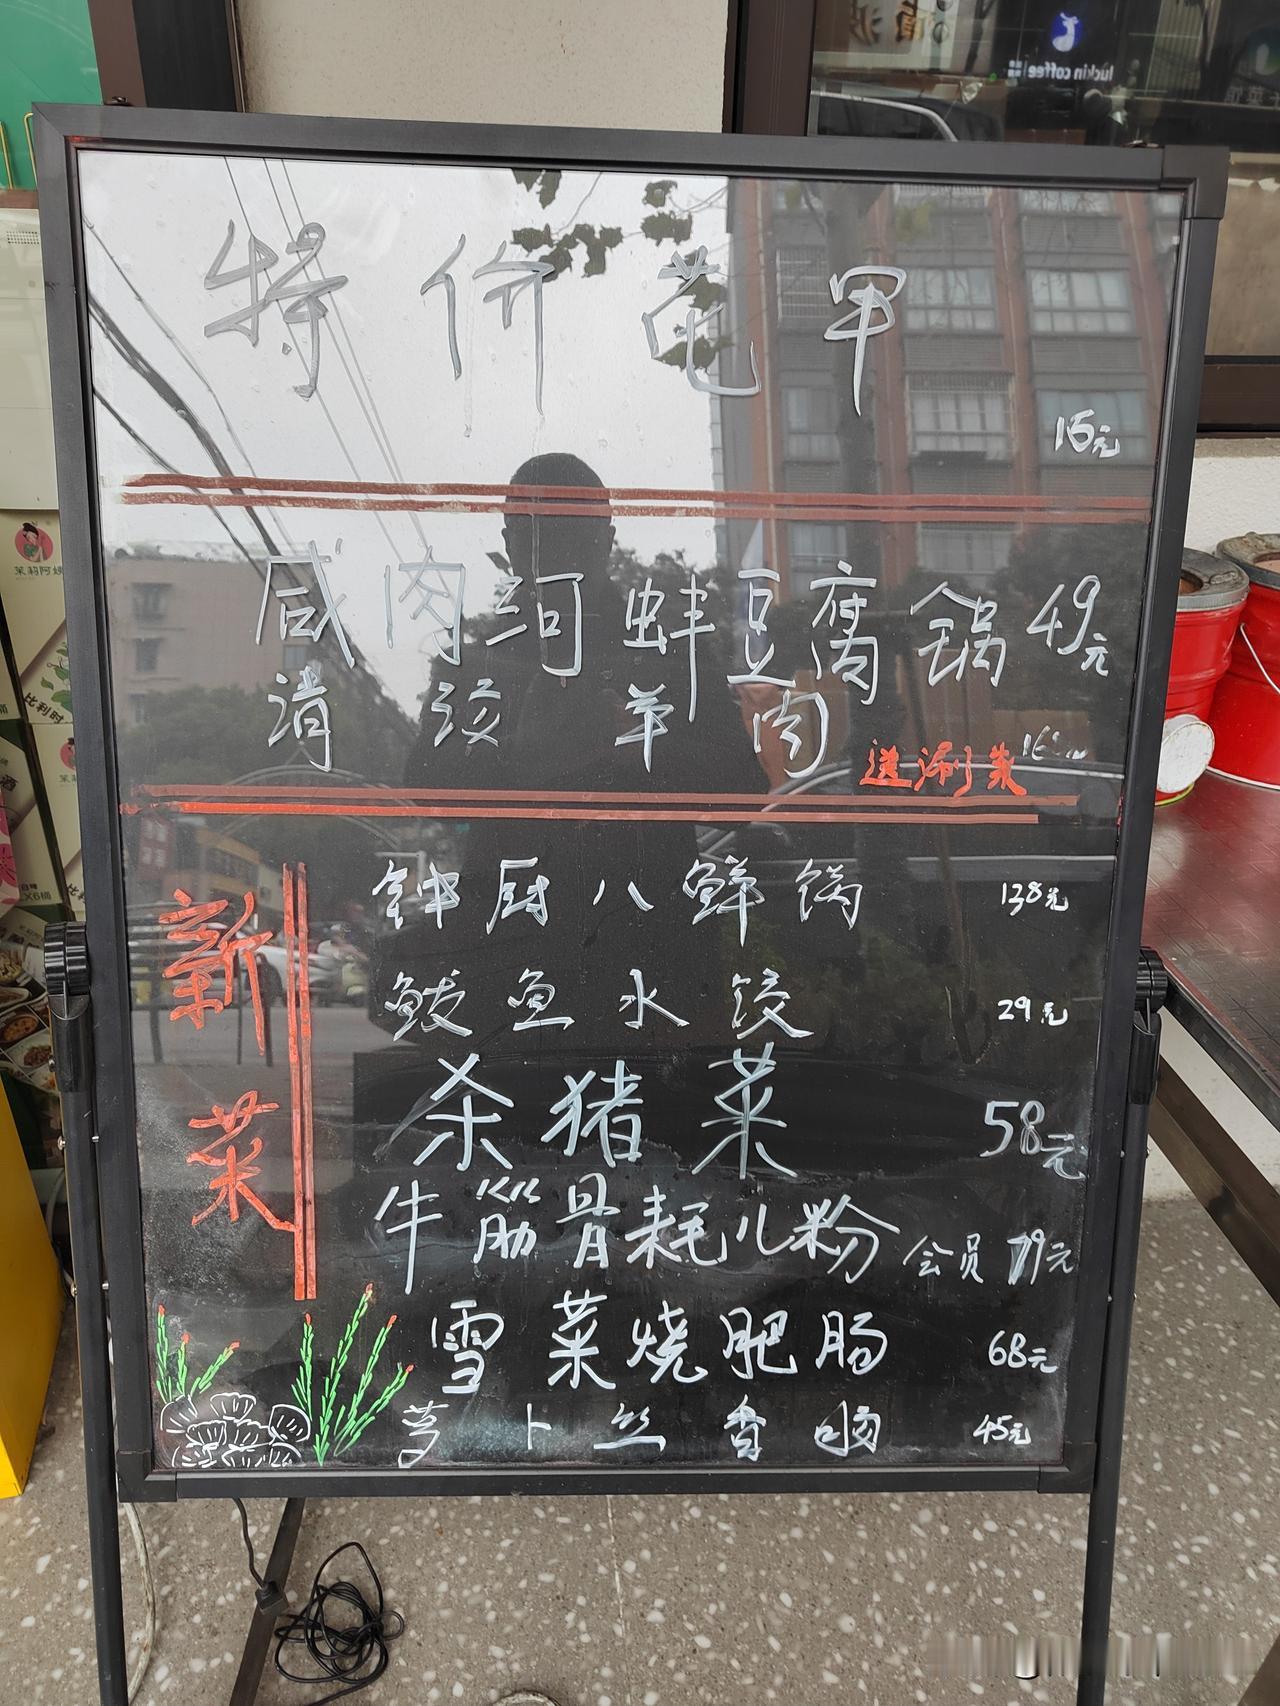 luckin coffee
特价花甲
16元
咸肉河蚌豆腐锅 49元
消汲羊肉 送涮菜
新菜
钟厨八鲜锅 138元
鲅鱼水饺 29元
杀猪菜 58元
牛筋骨耗儿粉 会员 79元
雪菜烧肥肠 68元
萝卜丝香脑 45元
茉莉阿姨
比利时